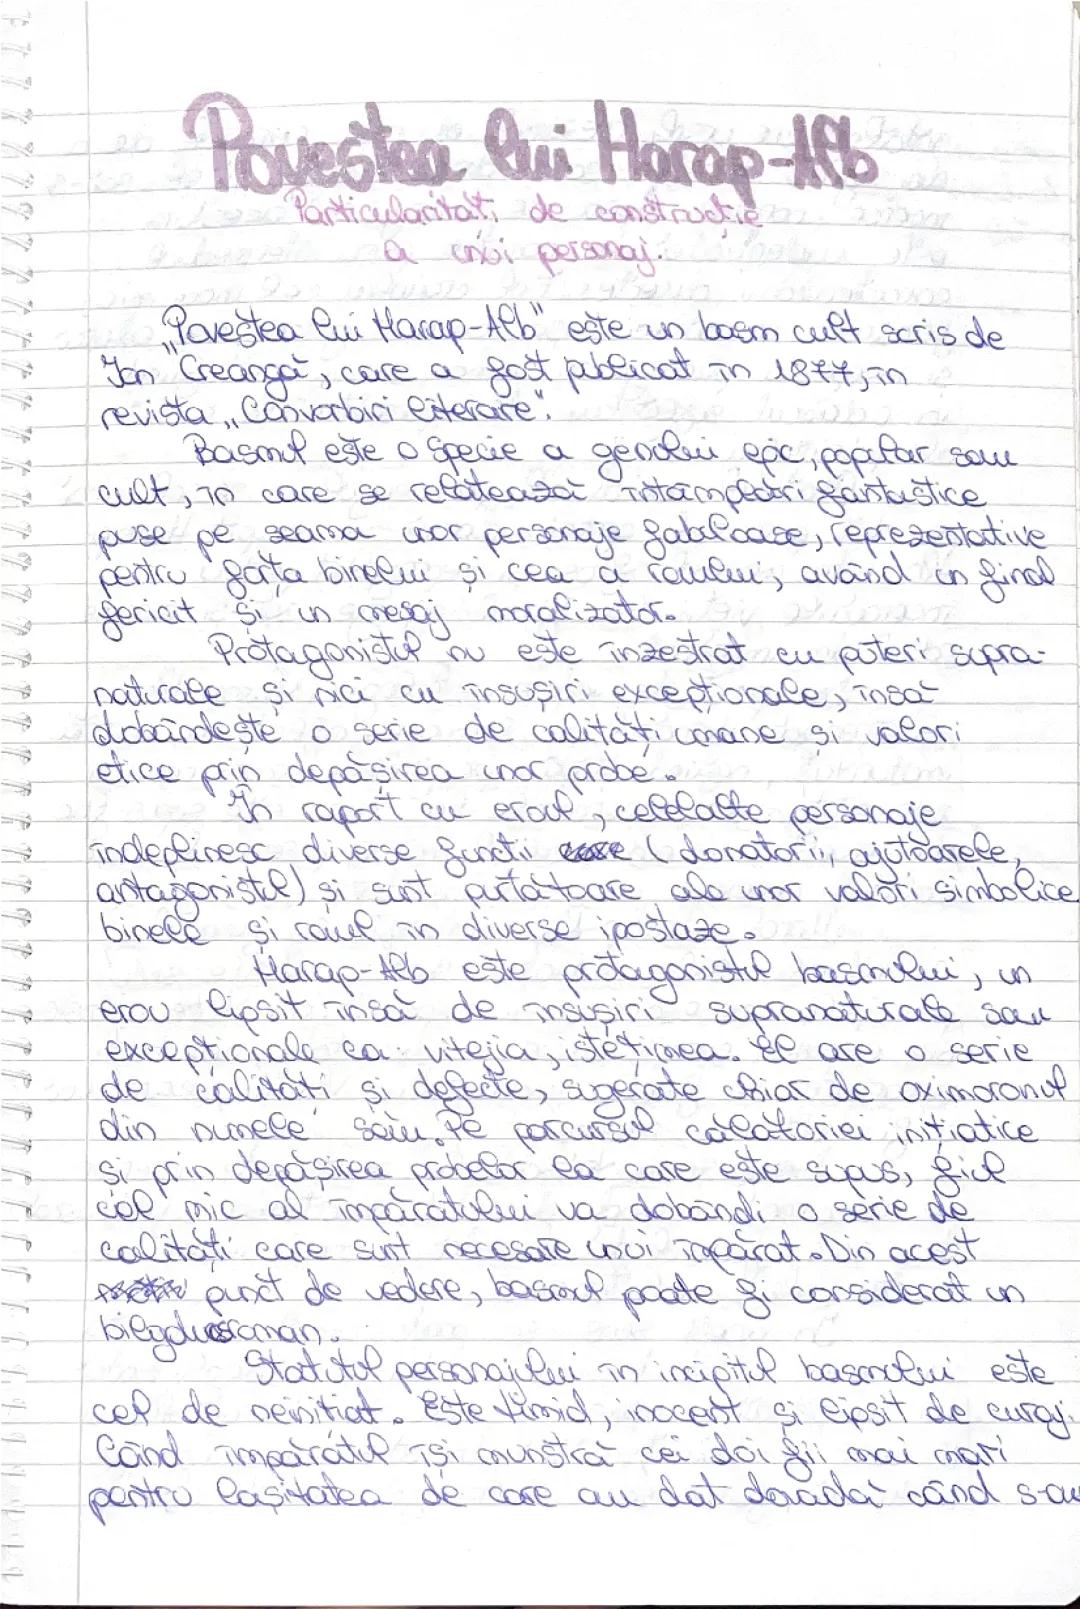 Povestea lui Harap-Alb
Particularități de construcție
a unui personaj.
„Povestea lui Harap-Alb" este un basm cult scris de
Ion Creangă, care a fost publicat în 1877, în
revista „Convorbiri literare".
Basmul este o specie a genului epic, popular sau
cult, în care se relatează întâmplări fantastice
puse pe seama unor personaje fabuloase, reprezentative
pentru forța binelui și cea a răului, având un final
fericit și un mesaj moralizator.
Protagonistul nu este înzestrat cu puteri supra-
naturale și nici cu însușiri excepționale, însă
dobândește o serie de calități umane și valori
etice prin depășirea unor probe.
În raport cu eroul, celelalte personaje
îndeplinesc diverse funcții (donatorii, ajutoarele,
antagonistul) și sunt purtătoare ale unor valori simbolice,
binele și răul în diverse ipostaze.
Harap-Alb este protagonistul basmului, un
erou lipsit însă de însușiri supranaturale sau
excepționale ca: vitejia, istețimea. El are o serie
de calități și defecte, sugerate chiar de oximoronul
din numele său. Pe parcursul călătoriei inițiatice
și prin depășirea probelor la care este supus, fiul
cel mic al împăratului va dobândi o serie de
calități care sunt necesare unui împărat. Din acest
punct de vedere, basmul poate fi considerat un
bildungsroman.
Statutul personajului în incipitul basmului este
cel de neinițiat. Este timid, inocent și lipsit de curaj.
Când împăratul își mustră cei doi fii mai mari
pentru lașitatea de care au dat dovadă când s-au